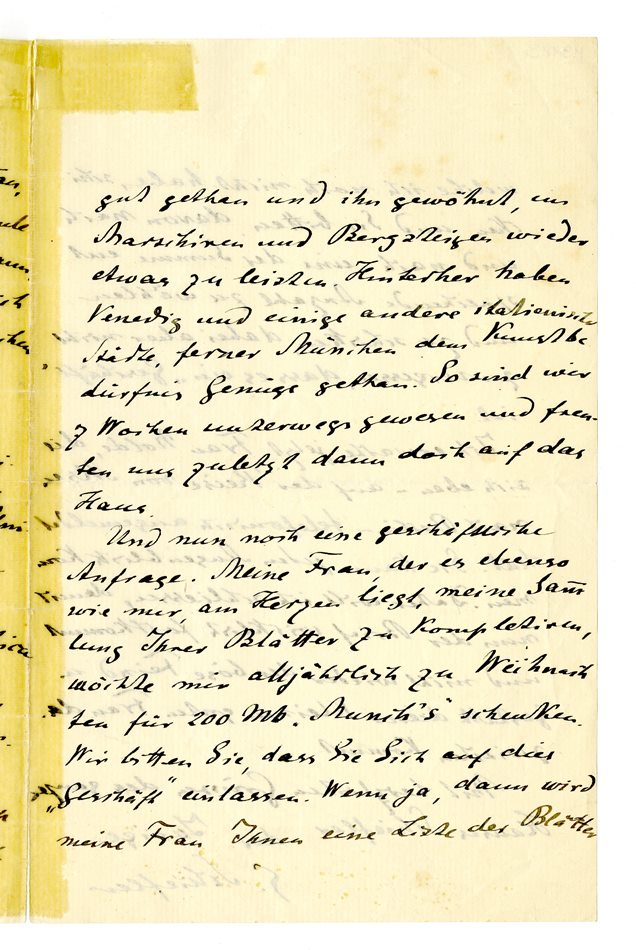 gut gethan und ihn gewöhnt, im
Marschiren und Bergsteigen wieder
etwas zu leisten. Hinterher haben
Venedig und einige andere italienische
Städte, ferner München dem Kunstbe
dürfnis Genüge gethan. So sind wir
7 Wochen unterwegs gewesen und freu-
ten uns zuletzt dann doch auf das
Haus.
Und nun noch eine geschäftliche
Anfrage. Meine Frau, der es ebenso
wie mir, am Herzen liegt, meine Sam̅
lung Ihrer Blätter zu kompletiren,
möchte mir alljährlich zu Weihnach
ten für 200 Mk. „Munch's“ schenken.
Wir bitten Sie, dass Sie Sich auf dies
„Geschäft“ einlassen. Wenn ja, dann wird
meine Frau Ihnen eine Liste der Blätter